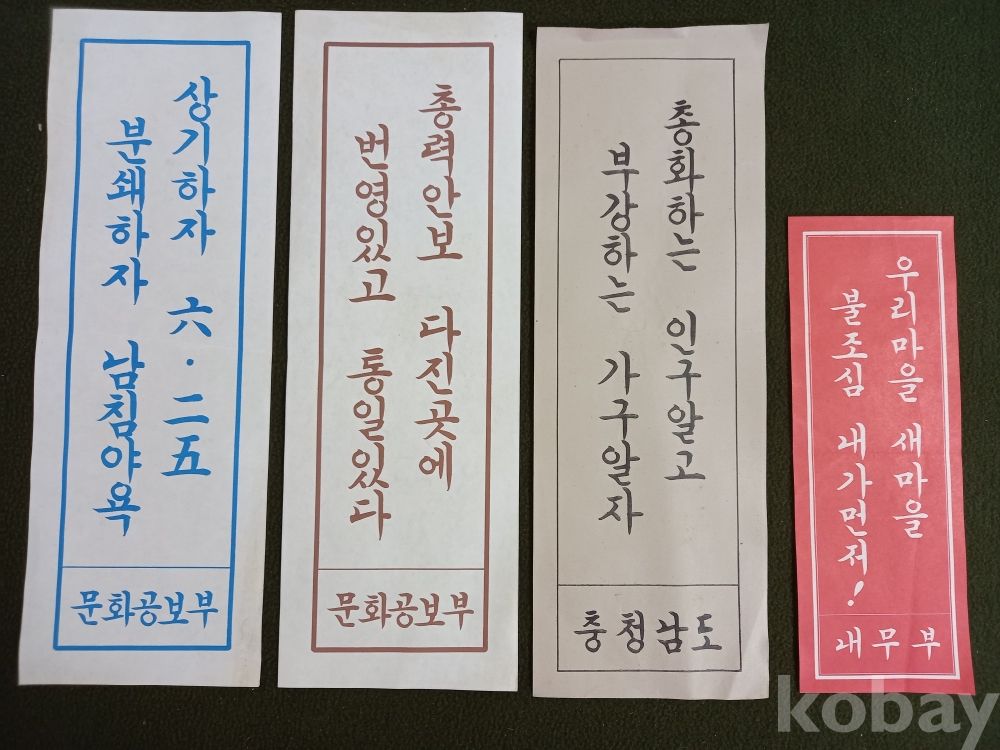 상기하자 六·二五
분쇄하자 남침야욕
문화공보부
총력안보 다진곳에
번영있고 통일있다
문화공보부
총화하는 인구알고
부강하는 가구알자
충청남도
우리마을 새마을
불조심 내가먼저!
내무부
kobay